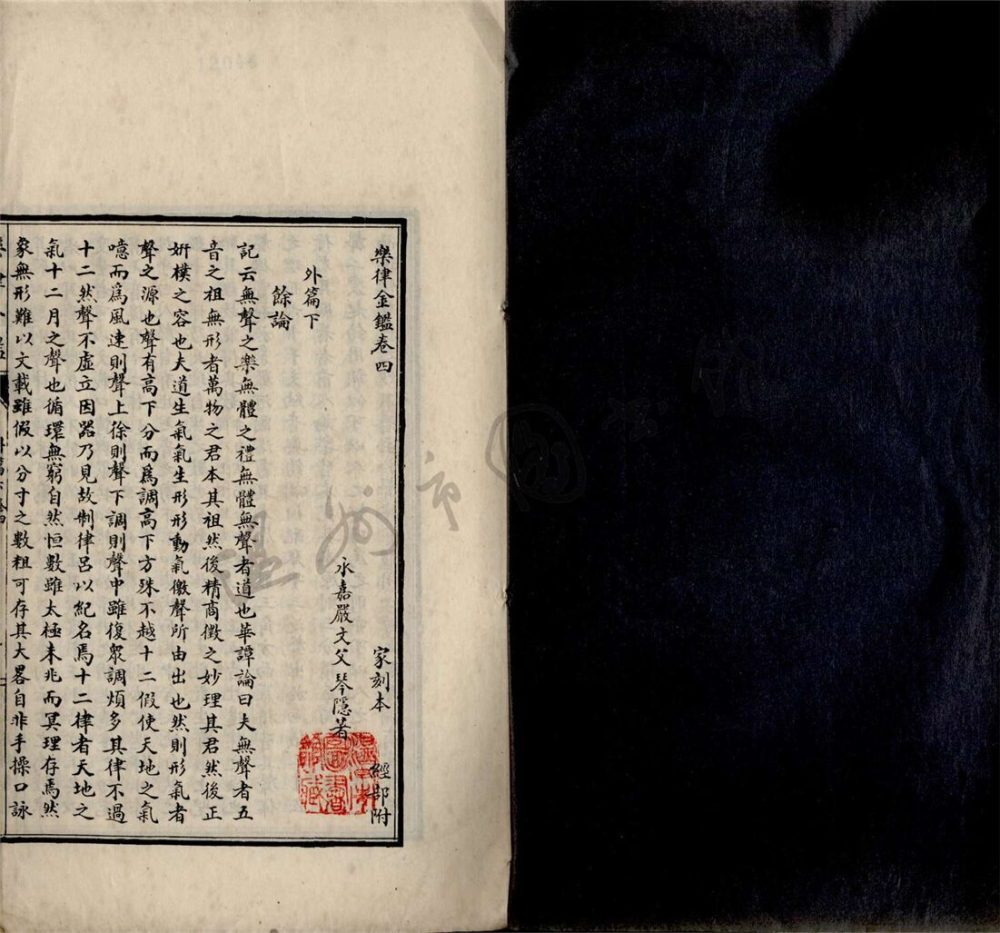 樂律金鑑卷四 家刻本 經部附
永嘉嚴文父琴隱著
外篇下
餘論
記云無聲之樂無體之禮無體無聲者道也華譚論曰夫無聲者五
音之祖無形者萬物之君本其祖然後精商徵之妙理其君然後正
妍樸之容也夫道生氣氣生形形動氣徹聲所由出也然則形氣者
聲之源也聲有高下分而爲調高下方殊不越十二假使天地之氣
噫而爲風速則聲上徐則聲下調則聲中雖復衆調煩多其律不過
十二然聲不虛立因器乃見故制律呂以紀名焉十二律者天地之
氣十二月之聲也循環無窮自然恒數雖太極未兆而冥理存焉然
象無形難以文載雖假以分寸之數粗可存其大畧自非手操口詠
溫州市
圖書
館藏
溫州市圖